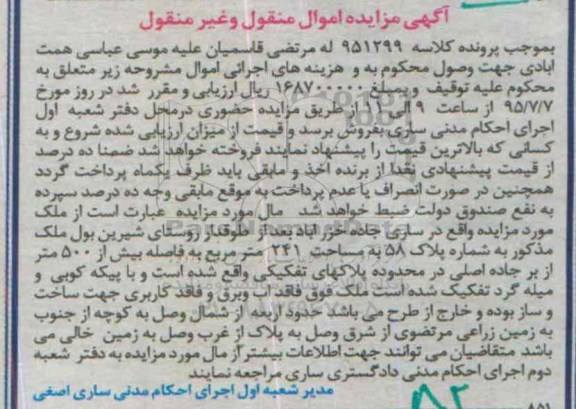 آگهی مزایده اموال منقول وغیر منقول
بموجب پرونده کلاسه ۹۵۱۲۹۹ له مرتضی قاسمیان علیه موسی عباسی همت
ابادی جهت وصول محکوم به و هزینه های اجرائی اموال مشروحه زیر متعلق به
محکوم علیه توقیف وبمبلغ ۱۶۸۷۰۰۰۰۰ ریال ارزیابی و مقرر شد در روز مورخ
۹۵/۷/۷ از ساعت ۹ الی ۱۱ از طریق مزایده حضوری درمحل دفتر شعبه اول
اجرای احکام مدنی ساری بفروش برسد و قیمت از میزان ارزیابی شده شروع و به
کسانی که بالاترین قیمت را پیشنهاد نمایند فروخته خواهد شد ضمنا ده درصد
از قیمت پیشنهادی نقدا از برنده اخذ و مابقی باید ظرف یکماه پرداخت گردد
همچنین در صورت انصراف یا عدم پرداخت به موقع مابقی وجه ده درصد سپرده
به نفع صندوق دولت ضبط خواهد شد مال مورد مزایده عبارت است از ملک
مورد مزایده واقع در ساری جاده خزر اباد بعد از طوقدار روستای شیرین بول ملک
مذکور به شماره پلاک ۵۸ به مساحت ۲۴۱ متر مربع به فاصله بیش از ۵۰۰ متر
از بر جاده اصلی در محدوده پلاکهای تفکیکی واقع شده است و با پیکه کوبی و
میله گرد تفکیک شده است ملک فوق فاقد آب وبرق و فاقد کاربری جهت ساخت
و ساز بوده و خارج از طرح می باشد حدود اربعه از شمال وصل به کوچه از جنوب
به زمین زراعی مرتضوی از شرق وصل به پلاک از غرب وصل به زمین خالی می
باشد متقاضیان می توانند جهت اطلاعات بیشتر از مال مورد مزایده به دفتر شعبه
دوم اجرای احکام مدنی دادگستری ساری مراجعه نمایند
مدیر شعبه اول اجرای احکام مدنی ساری اصغی
۸۵۱